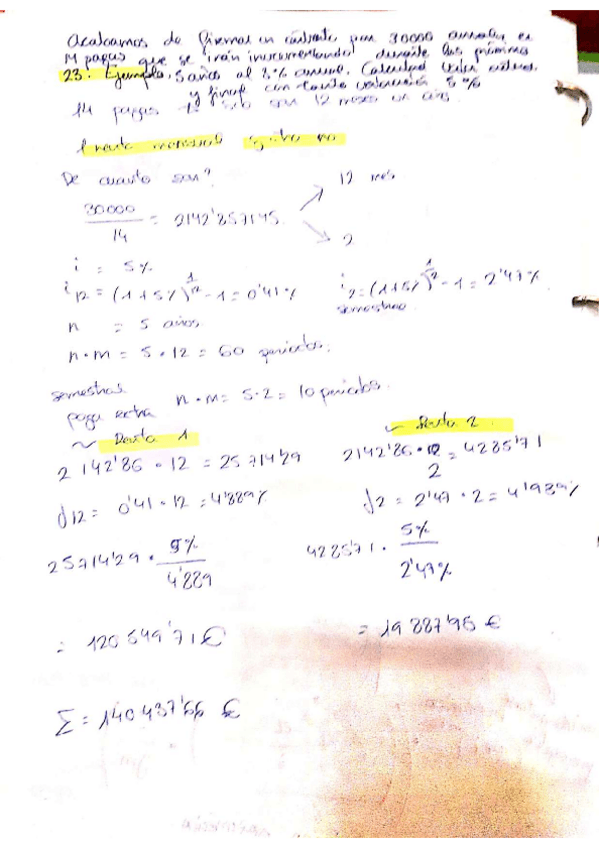 Acabamos de firmar un contrato por 30000 anuales en
14 pagas que se irán incrementando durante los próximos
23. Ejemplo. 5 años al 2% anual. Calcular valor actual
y final con tanto valoración 5%
14 pagas son 12 meses un año
1 renta mensual
De cuanto son?
30000 / 14 = 2142'857145
12 mes
2
i = 5%
i12 = (1+5%)^1/12 - 1 = 0'41%
i2 = (1+5%)^1/2 - 1 = 2'47%
semestral
n = 5 años
n·m = 5·12 = 60 periodos.
semestral
paga extra n·m = 5·2 = 10 periodos
~ Renta 1
2142'86 · 12 = 25714'29
J12 = 0'41 · 12 = 4'889%
25714'29 · 5% / 4'889
= 120549'71 €
~ Renta 2
2142'86 · 12 / 2 = 4285'71
J2 = 2'47 · 2 = 4'939%
4285'71 · 5% / 2'47%
= 19887'95 €
Σ = 140437'66 €